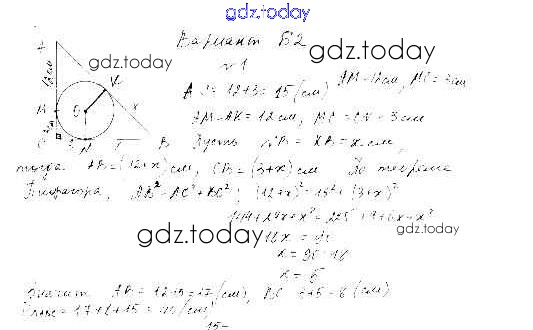 gdz.today
Вариант Б2
№1
AM = 12 см, MC = 3 см
AC = 12+3 = 15 (см)
AM = AK = 12 см, MC = CN = 3 см
Пусть NB = KB = x см,
тогда AB = (12+x) см, CB = (3+x) см По теореме
Пифагора, AB² = AC² + BC²; (12+x)² = 15² + (3+x)²
144+24x+x² = 225+9+6x+x²
18x = 90
x = 90:18
x = 5
Значит AB = 12+5 = 17 (см), BC = 3+5 = 8 (см)
17+8+15 = 40 (см)
gdz.today
gdz.today
gdz.today
gdz.today
gdz.today
A
12 см
M
O
K
x
N
B